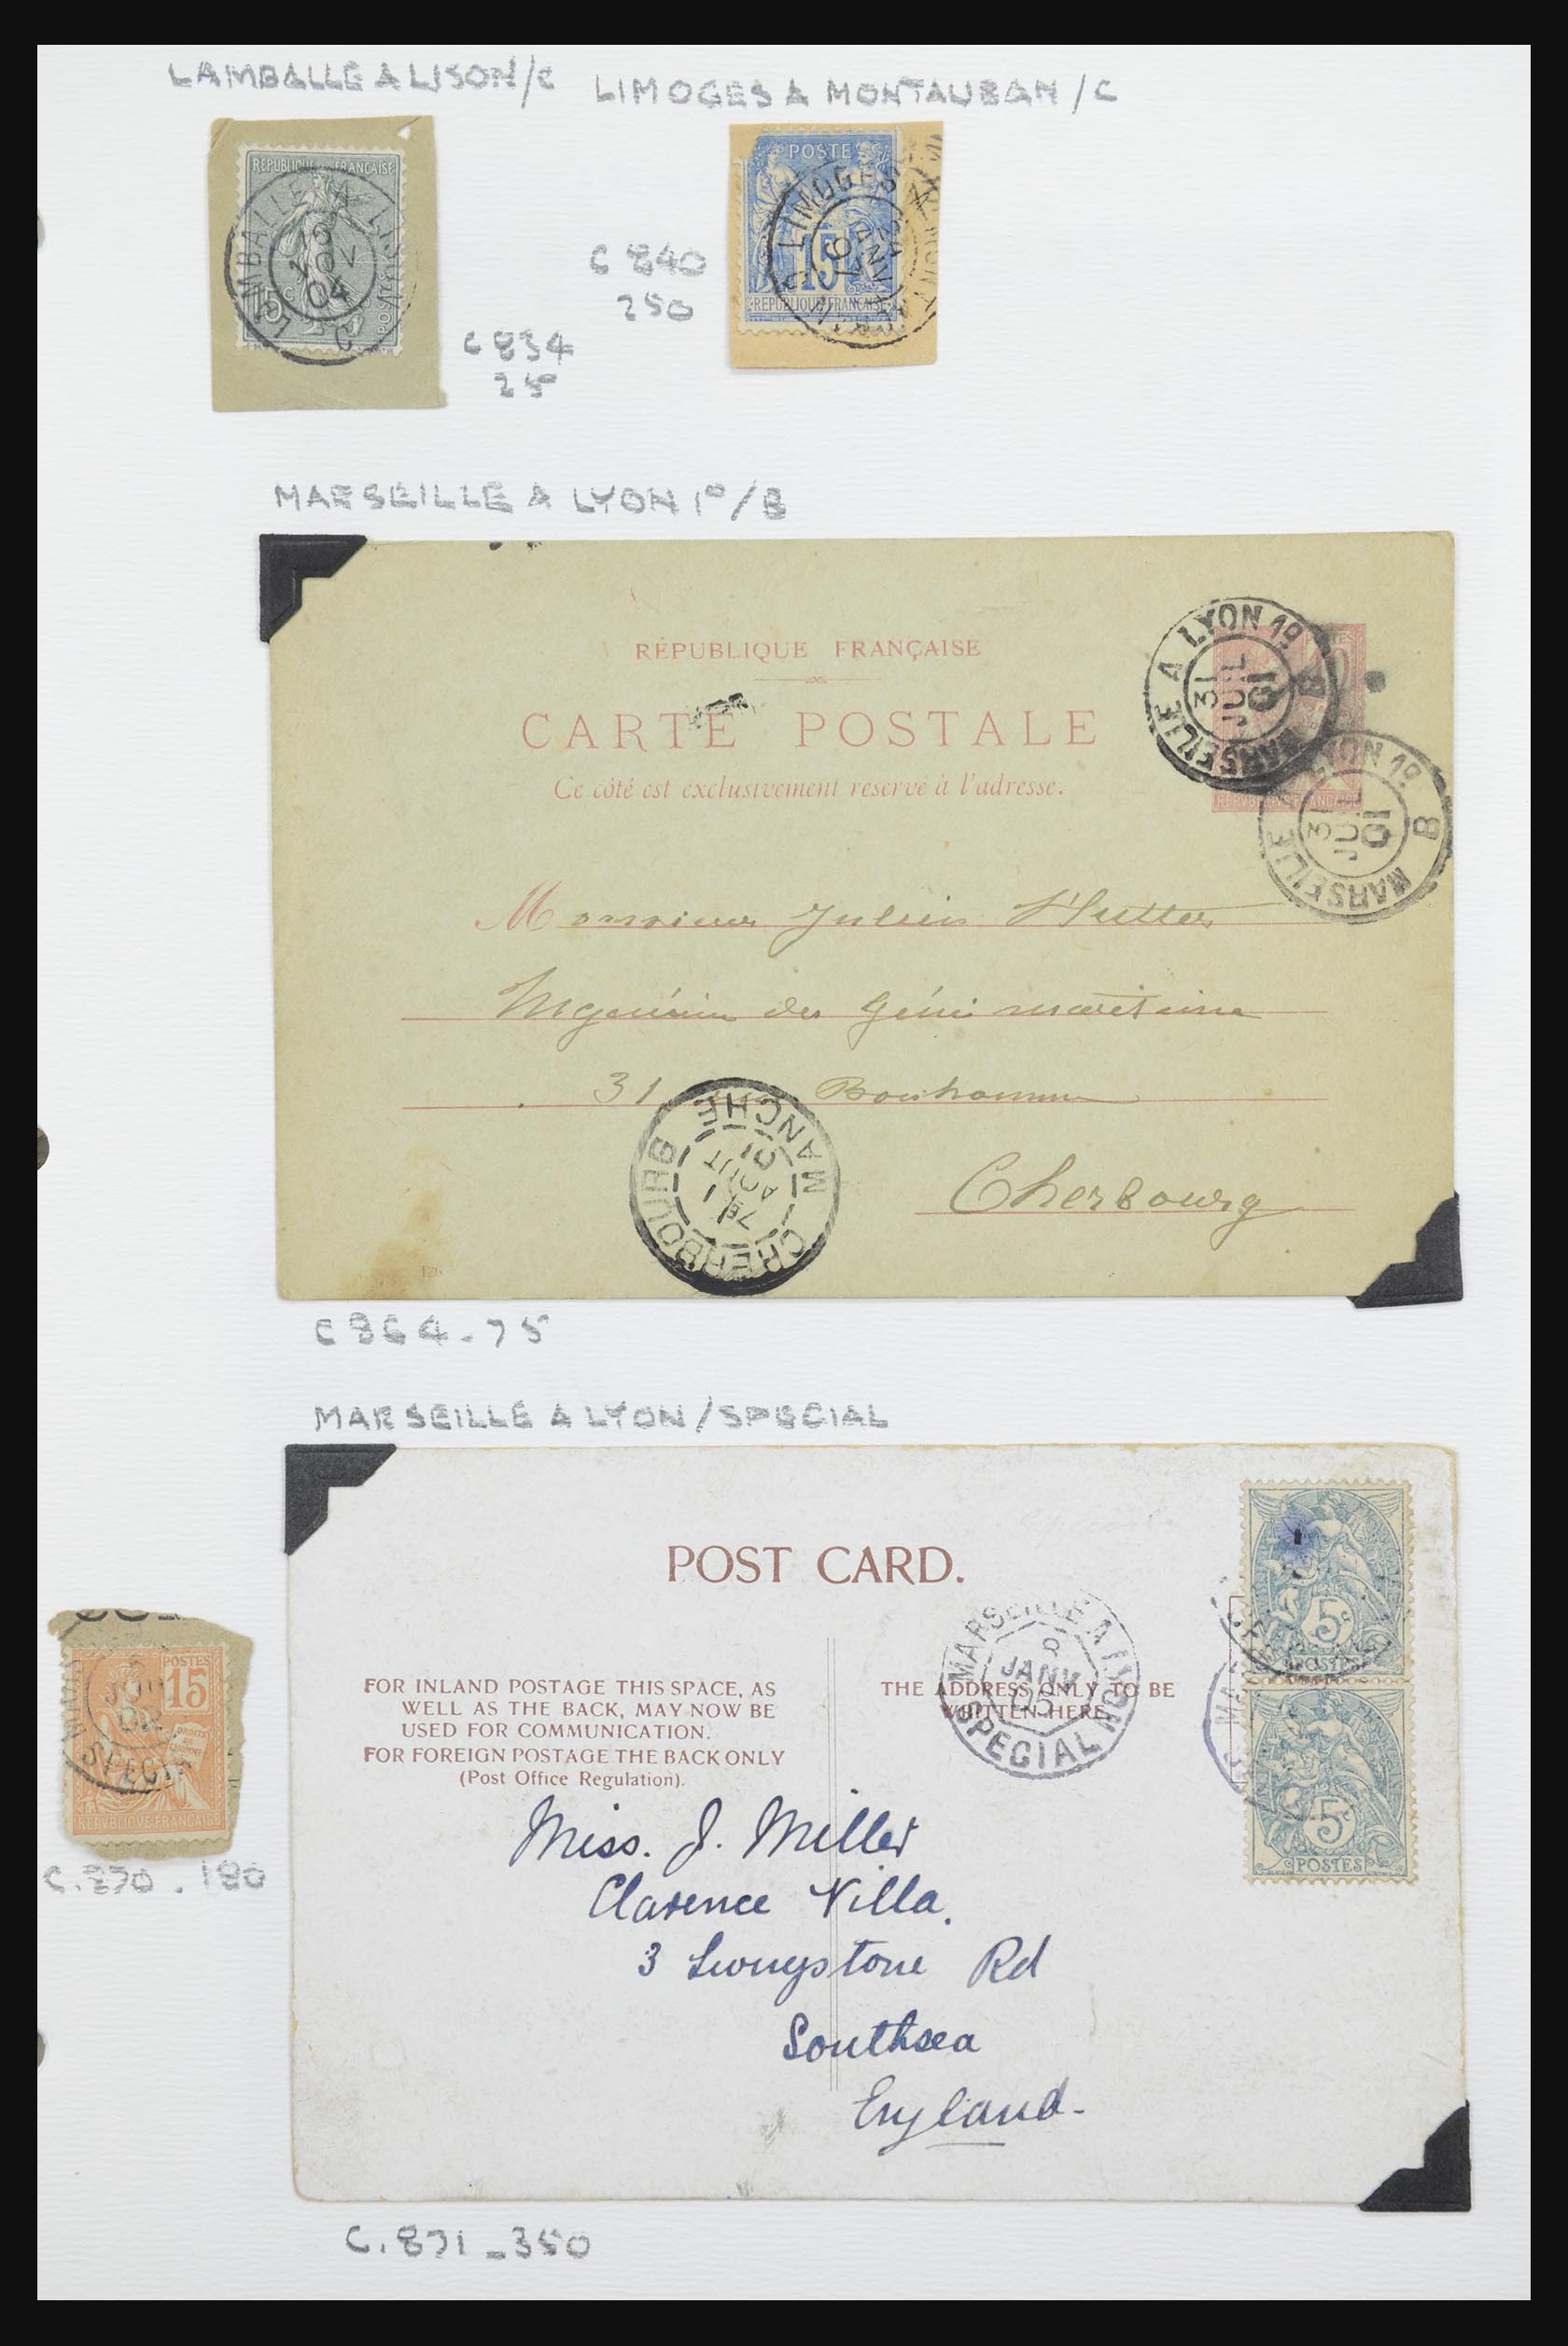 LAMBALLE A LISON/C
LIMOGES A MONTAUBAN/C
REPUBLIQUE FRANÇAISE
LAMBALLE A LISON
6
NOV
04
C
15c
POSTES
C 834
25
C 840
250
POSTE
LIMOGES A
JANV
97
15
REPUBLIQUE FRANÇAISE
MARSEILLE A LYON 1º/B
RÉPUBLIQUE FRANÇAISE
CARTE POSTALE
Ce côté est exclusivement réservé à l'adresse.
MARSEILLE A LYON 1º
31
JUIL
01
B
10
REPVBLIQVE FRANÇAISE
MARSEILLE LYON 1º
31
JUIL
01
B
Monsieur Julien Hutter
Ingénieur du Génie maritime
31 Bonhomme
Cherbourg
CHERBOURG
MANCHE
7E
1
AOUT
01
C 864 - 75
MARSEILLE A LYON/SPECIAL
POST CARD.
FOR INLAND POSTAGE THIS SPACE, AS
WELL AS THE BACK, MAY NOW BE
USED FOR COMMUNICATION.
FOR FOREIGN POSTAGE THE BACK ONLY
(Post Office Regulation).
THE ADDRESS ONLY TO BE
WRITTEN HERE.
MARSEILLE A LYON
9
JANV
05
SPECIAL
5c
POSTES
5c
POSTES
POSTES
15
DROITS
DE
L'HOMME
REPVBLIQVE FRANÇAISE
C.870 - 180
Miss. J. Miller
Clarence Villa.
3 Livingstone Rd
Southsea
England-
C.871 - 350